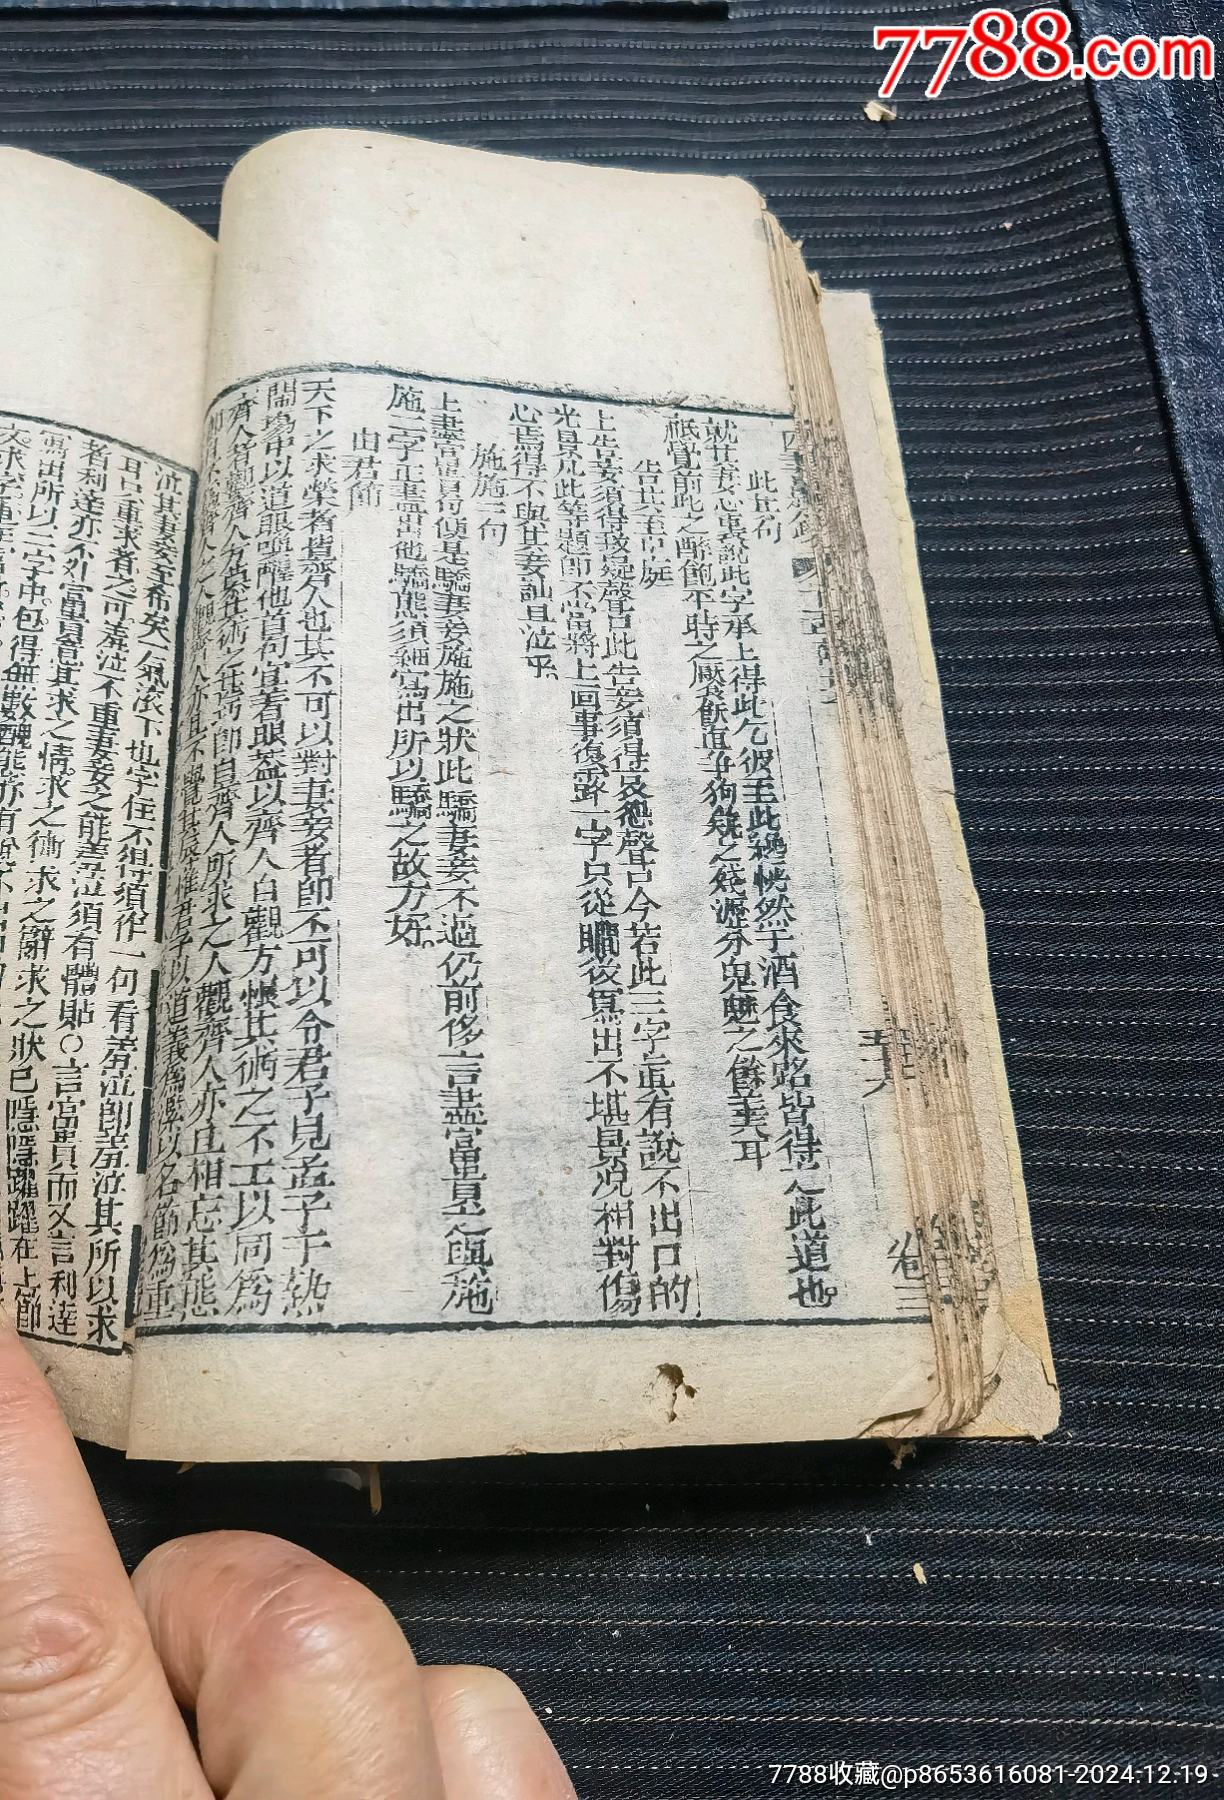 7788.com
此其句
就其妻心裏說此字承上得此乞彼至此纔恍然于酒食來路皆得之此道也
祗覺前此之醉飽平時之饜飫直爭狗彘之殘瀝分鬼魅之餘羹耳
告其至中庭
上告妾須得我疑聲口此告妾須得哀怨聲口今若此三字真有說不出口的
光景凡此等題卽不當將上回事復露一字只從瞷後寫出不堪景況相對傷
心焉得不與其妾訕且泣乎
施施句
上盡富貴句便是驕妻妾施施之狀此驕妻妾不過仍前侈言盡富貴之與施
施二字正畫出他驕態須細寫出所以驕之故方好
由君節
天下之求榮者皆齊人也其不可以對妻妾者卽不可以令君子見孟子于熱
鬧場中以道眼喚醒他首句宜着眼蓋以齊人自觀方悵其術之不工以同爲
齊人者觀齊人方羨其術之甚巧卽自齊人所求之人觀齊人亦且相忘其態
以道義爲鑒以名節爲重
泣其妻妾至希矣一氣滾下也字住不得須作一句看羞泣卽羞泣其所以求
且只重求者之可羞泣不重妻妾之能羞泣須有體貼〇言富貴而又言利達
者利達亦不外富貴竟其求之情求之術求之辭求之狀已隱隱躍躍在上節
寫出所以二字中包得無數醜態
卷三
7788收藏@p8653616081-2024.12.19